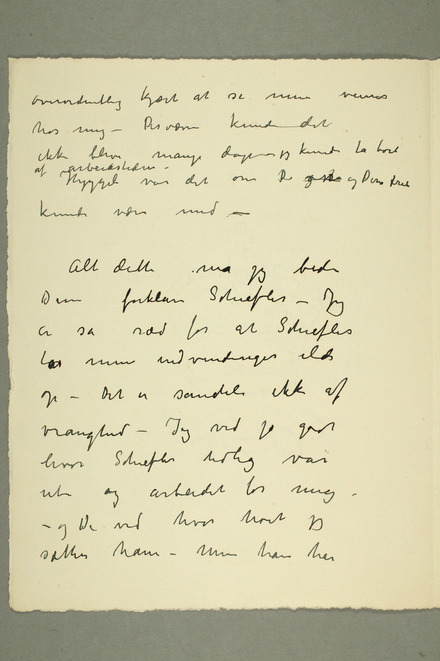 overordentlig kjært at se mine venner
hos mig – Desværre kunde det
ikke blive mange dage jeg kunde ta bort
af arbeidstiden –
Hyggeligt var det om De og Deres frue
kunde være med –
Alt dette må jeg bede
Dem forklare Schiefler – Jeg
er så ræd for at Schiefler
tar mine indvendinger ilde
op – Det er sandelig ikke af
vranghed – Jeg ved jo godt
hvor Schiefler tidlig var
ute og arbeidet for mig –
– og De ved hvor høit jeg
sætter ham – Men han har